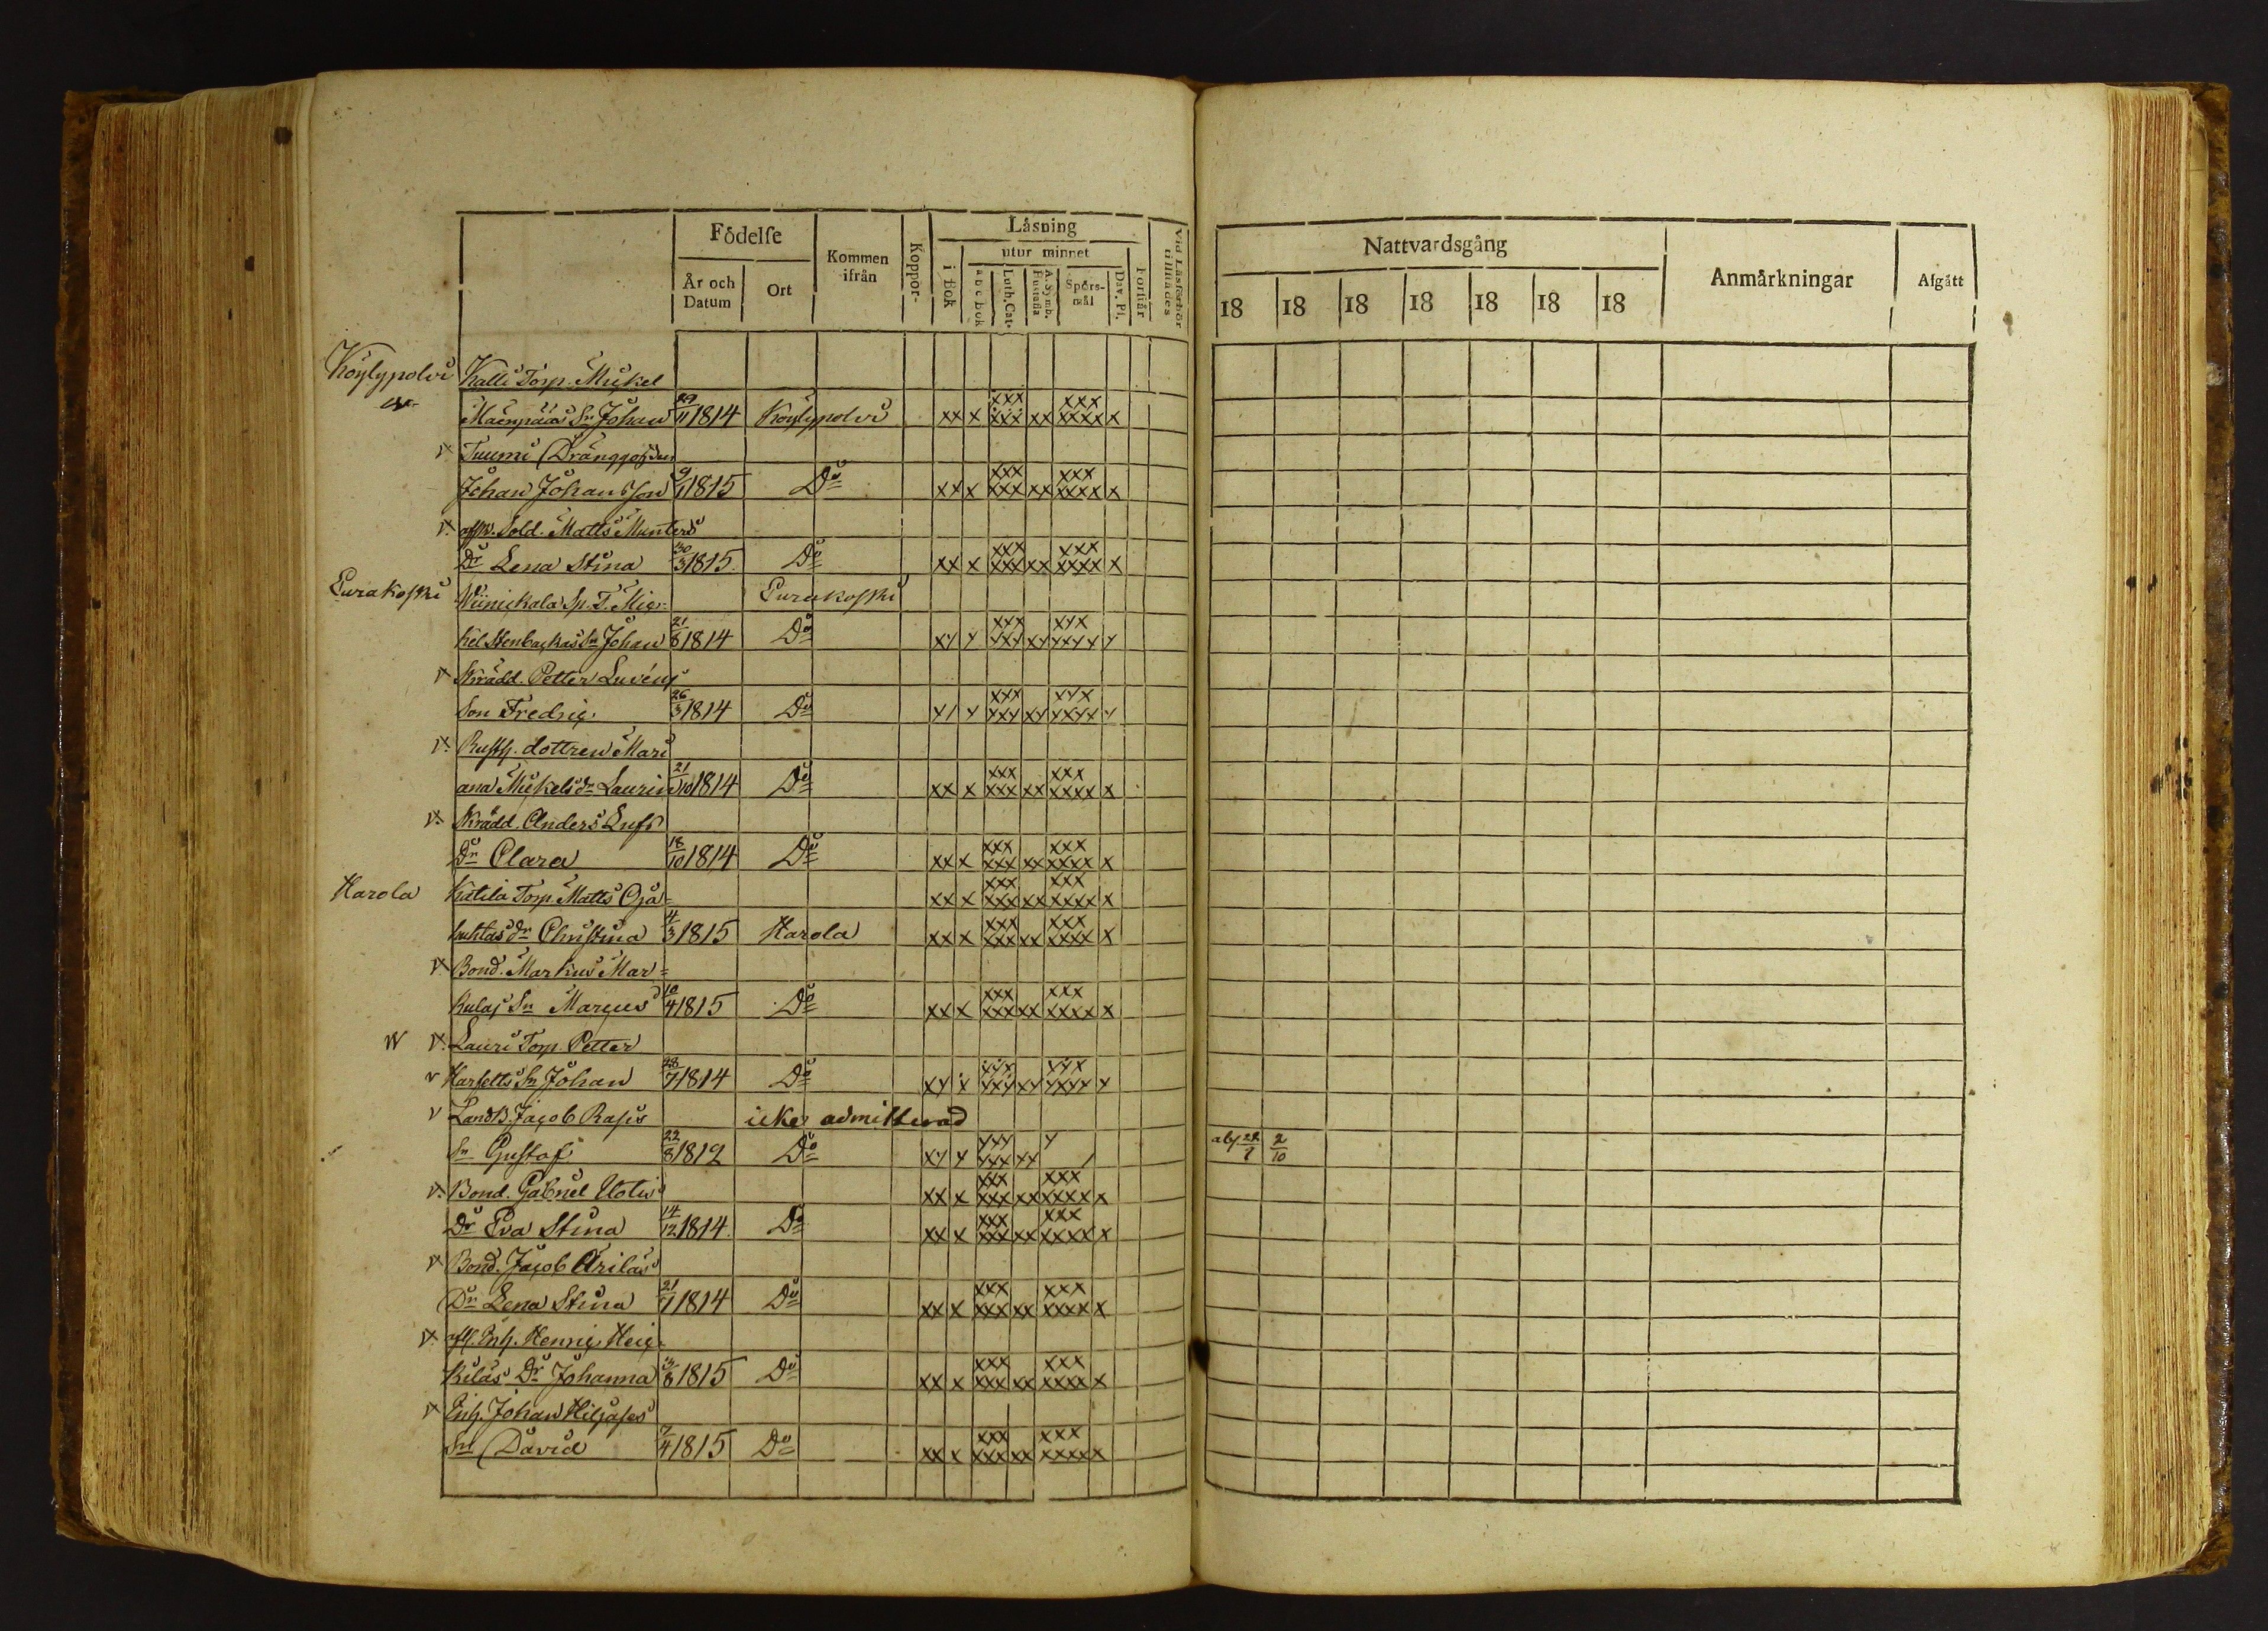 Födelse
Kommen ifrån
Koppor-
Läsning
utur minnet
År och Datum
Ort
i Bok
a b c bok
Luth. Cat.
A. Symb. Hustafla
Spörs-mål
Dav. Ps.
Förstår
Vid Läsförhör tillstädes
Nattvardsgång
Anmärkningar
Afgått
18 18 18 18 18 18 18
Köylypolvi Kalli Torp. Mickel
Mäenpääs Sn Johan 29/11 1814 Köylypolvi xx x xxx xxx xx xxx xxxx x
Tuumi Dränggoss
Johan Johansson 9/1 1815 Do xx x xxx xxx xx xxx xxxx x
afsk. Sold. Matts Munters
Dr Lena Stina 30/3 1815. Do xx x xxx xxx xx xxx xxxx x
Eurakoski Wiinickala Sp. T. Mic- Eurakoski
kel Stenbackas Sn Johan 21/8 1814 Do xx x xxx xxx xx xxx xxxx x
Skrädd. Petter Luvens
Son Fredric. 26/3 1814 Do xx x xxx xxx xx xxx xxxx x
Rusth. dottren Mari
ana Mickelsdr Lauri 21/10 1814 Do xx x xxx xxx xx xxx xxxx x
Skrädd. Anders Lufs
Dr Clara 18/10 1814 Do xx x xxx xxx xx xxx xxxx x
Harola Katila Torp. Matts Oja- xx x xxx xxx xx xxx xxxx x
kuhtas dr Christina 4/3 1815 Harola xx x xxx xxx xx xxx xxxx x
Bond. Markus Mar=
kulas Sn Marcus 10/4 1815 Do xx x xxx xxx xx xxx xxxx x
Lauri Torp. Petter
Harfelts Sn Johan 28/7 1814 Do xx x xxx xxx xx xxx xxxx x
Landb. Jacob Rasis icke admitterad
Sn Gustaf 22/8 1812 Do xx x xxx xxx xx x abs 2/10
Bond. Gabriel Uotis xx x xxx xxx xx xxx xxxx x
Dr Eva Stina 14/12 1814. Do xx x xxx xxx xx xxx xxxx x
Bond. Jacob Arilas
Dr Lena Stina 21/1 1814 Do xx x xxx xxx xx xxx xxxx x
Inh. Henric Heic-
kiläs Dr Johanna 1815 Do xx x xxx xxx xx xxx xxxx x
Inh. Johan Hiljases
Sn David 7/4 1815 Do xx x xxx xxx xx xxx xxxx x